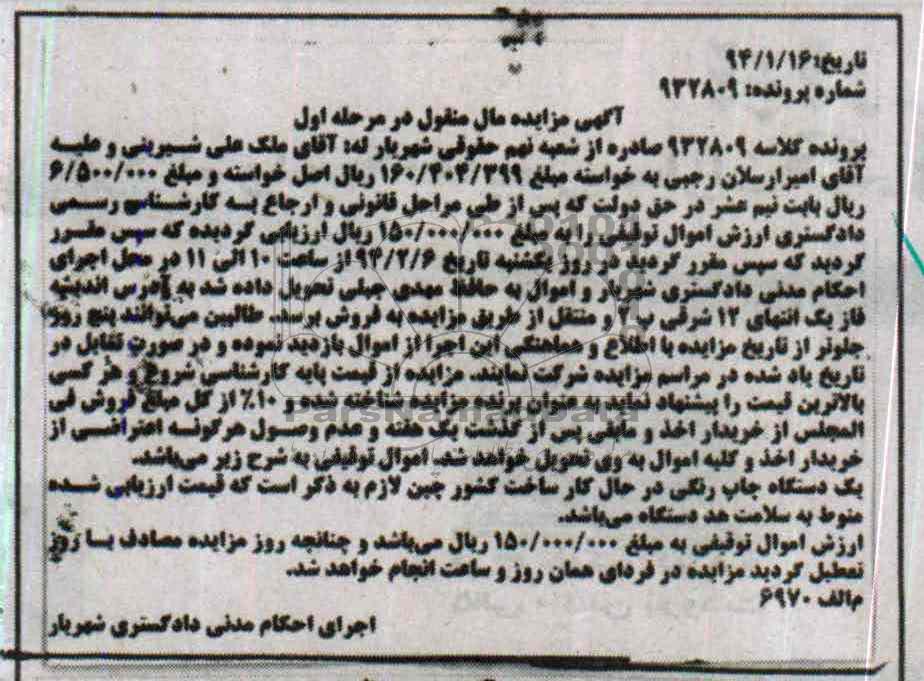 تاریخ: ۹۴/۱/۱۶
شماره پرونده: ۹۳۲۸۰۹
آگهی مزایده مال منقول در مرحله اول
پرونده کلاسه ۹۳۲۸۰۹ صادره از شعبه نهم حقوقی شهریار له: آقای ملک علی شیرینی و علیه
آقای امیرارسلان رجبی به خواسته مبلغ ۱۶۰/۴۰۴/۳۹۹ ریال اصل خواسته و مبلغ ۶/۵۰۰/۰۰۰
ریال بابت نیم عشر در حق دولت که پس از طی مراحل قانونی و ارجاع به کارشناس رسمی
دادگستری ارزش اموال توقیفی را به مبلغ ۱۵۰/۰۰۰/۰۰۰ ریال ارزیابی گردیده که سپس مقرر
گردید که سپس مقرر گردید در روز یکشنبه تاریخ ۹۴/۲/۶ از ساعت ۱۰ الی ۱۱ در محل اجرای
احکام مدنی دادگستری شهریار و اموال به حافظ مهدی جبلی تحویل داده شد به آدرس اندیشه
فاز یک انتهای ۱۲ شرقی پ ۲ و منتقل از طریق مزایده به فروش برسد. طالبین می‌توانند پنج روز
جلوتر از تاریخ مزایده با اطلاع و هماهنگی این اجرا از اموال بازدید نموده و در صورت تقابل در
تاریخ یاد شده در مراسم مزایده شرکت نمایند، مزایده از قیمت پایه کارشناسی شروع و هر کسی
بالاترین قیمت را پیشنهاد نماید به عنوان برنده مزایده شناخته شده و ۱۰٪ از کل مبلغ فروش فی
المجلس از خریدار اخذ و مابقی پس از گذشت یک هفته و عدم وصول هرگونه اعتراضی از
خریدار اخذ و کلیه اموال به وی تحویل خواهد شد. اموال توقیفی به شرح زیر می‌باشد.
یک دستگاه چاپ رنگی در حال کار ساخت کشور چین لازم به ذکر است که قیمت ارزیابی شده
منوط به سلامت هد دستگاه می‌باشد.
ارزش اموال توقیفی به مبلغ ۱۵۰/۰۰۰/۰۰۰ ریال می‌باشد و چنانچه روز مزایده مصادف با روز
تعطیل گردید مزایده در فردای همان روز و ساعت انجام خواهد شد.
م‌الف ۶۹۷۰
اجرای احکام مدنی دادگستری شهریار
ParsNamadData